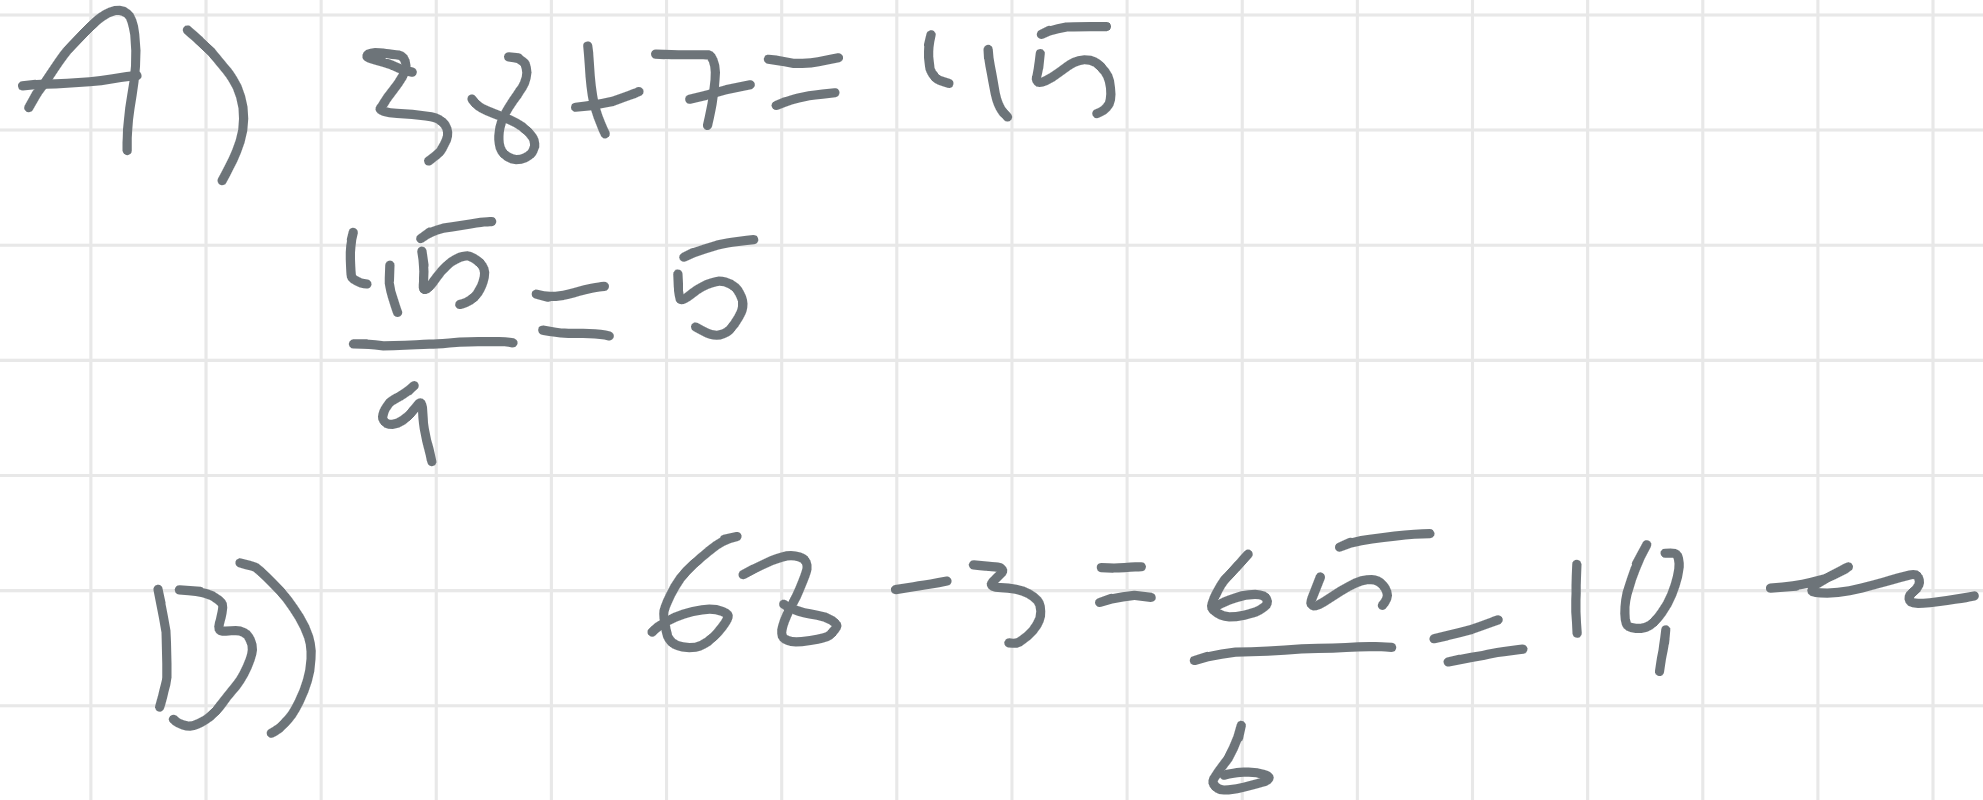 A) 38+7=45
45/9=5
B) 68-3=65/6=10,